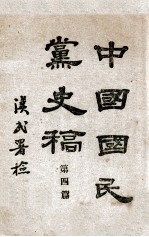 中國國民
黨史稿
第四篇
漢民署檢